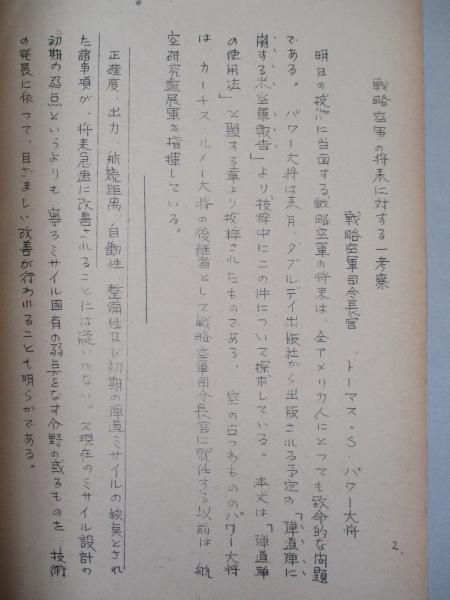 戦略空軍の将来に対する一考察
戦略空軍司令長官 トーマス・S・パワー大将
明日の技術に当面する戦略空軍の将来は、全アメリカ人にとっても致命的な問題
である。 パワー大将は来月、ダブルデイ出版社から出版される予定の「弾道弾に
関する米空軍報告」より抜粋中にこの件について探求している。 本文は「弾道弾
の使用法」と題する章より抜粋されたものである。 空の古つわもののパワー大将
は、カーチス、ルメー大将の後継者として戦略空軍司令長官に就任する以前は、航
空研究発展軍を指揮している。
正確度、出力、航続距離、自働性、整備性及び初期の弾道ミサイルの欠点とされ
た諸事項が、将来急速に改善されることには疑いがない。又現在のミサイル設計の
初期の弱点というよりも寧ろミサイル固有の弱点をなす分野の或るものを、技術
の発展に依つて、目ざましい改善が行われることも明らかである。
2.